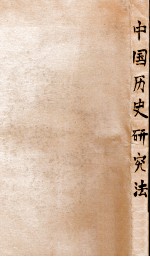 中国历史研究法